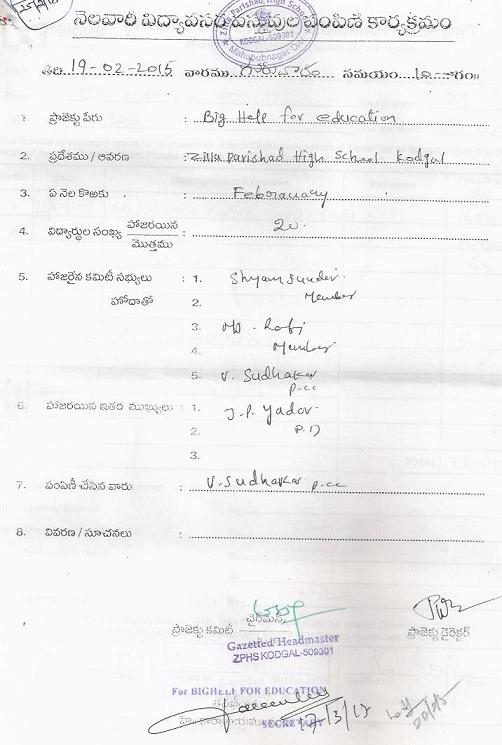 నెలవారి విద్యావసర వస్తువుల పంపిణి కార్యక్రమం
Zilla Parishad High School
KODGAL-509301
Mahabubnagar Dist
తేది 19-02-2015 వారము గురువారం సమయం
1. ప్రాజెక్టు పేరు : Big Help for education
2. ప్రదేశము / ఆవరణ : Zilla parishad High School Kodgal
3. ఏ నెల కొఱకు : February
4. విద్యార్థుల సంఖ్య హాజరయిన : 20
మొత్తము
5. హాజరైన కమిటీ సభ్యులు : 1. Shyam sunder
హోదాతో 2. Member
3. MD. Rafi
4. Member
5. V. Sudhakar
p-cc
6. హాజరయిన ఇతర ముఖ్యులు : 1. J.P. Yadav
2. P.D
3.
TOTAL
7. పంపిణీ చేసిన వారు : V. Sudhakar p-cc
8. వివరణ / సూచనలు :
చైర్మెన్
ప్రాజెక్టు కమిటీ
ప్రాజెక్టు డైరెక్టర్
Gazetted Headmaster
ZPHS KODGAL-509301
For BIGHELP FOR EDUCATION
SECRETARY